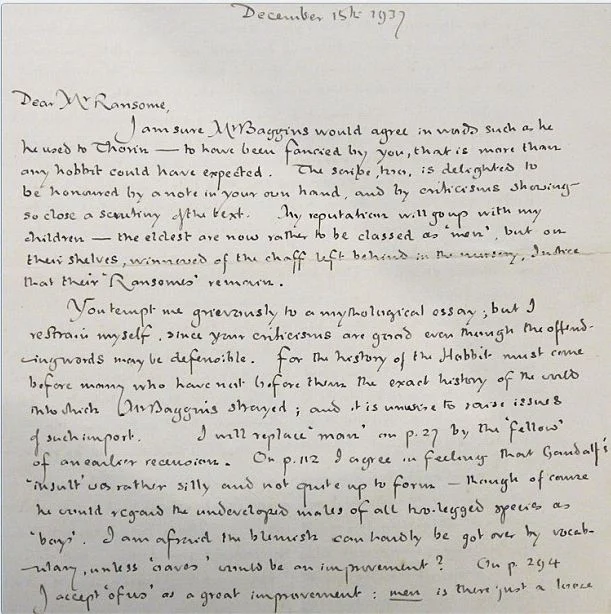 December 15th 1937
Dear Mr Ransome,
I am sure Mr Baggins would agree in words such as he
he used to Thorin — to have been fancied by you, that is more than
any hobbit could have expected. The scribe, too, is delighted to
be honoured by a note in your own hand, and by criticisms showing
so close a scrutiny of the text. My reputation will go up with my
children — the eldest are now rather to be classed as 'men', but on
their shelves, winnowed of the chaff left behind in the nursery, I notice
that their 'Ransomes' remain.
You tempt me grievously to a mythological essay; but I
restrain myself, since your criticisms are good even though the offend-
ing words may be defensible. For the history of the Hobbit must come
before many who have not before them the exact history of the world
into which Mr Baggins strayed; and it is unwise to raise issues
of such import. I will replace 'man' on p. 27 by the 'fellow'
of an earlier recension. On p. 112 I agree in feeling that Gandalf's
'insult' was rather silly and not quite up to form — though of course
he would regard the undeveloped males of all two-legged species as
'boys'. I am afraid the blemish can hardly be got over by vocab-
ulary, unless 'oaves' would be an improvement? On p. 294
I accept 'of us' as a great improvement: men is there just a loose